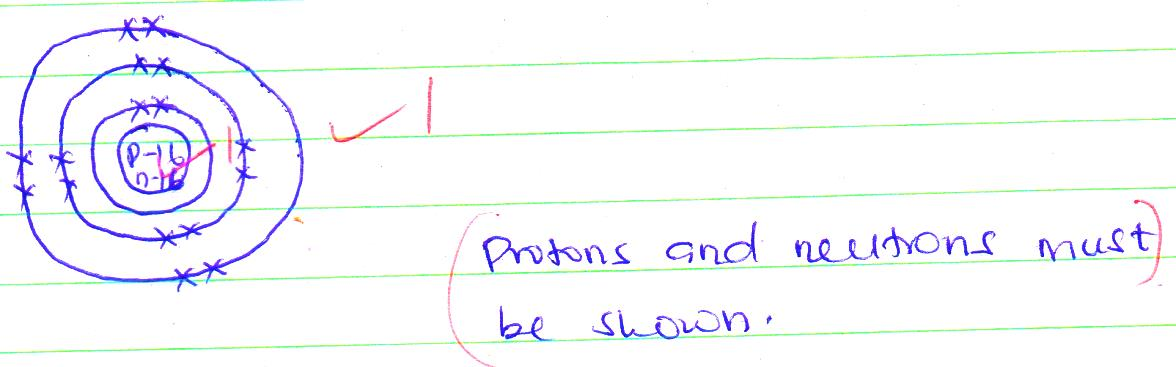 p-16
n-16
1
1
(Protons and neutrons must)
be shown.